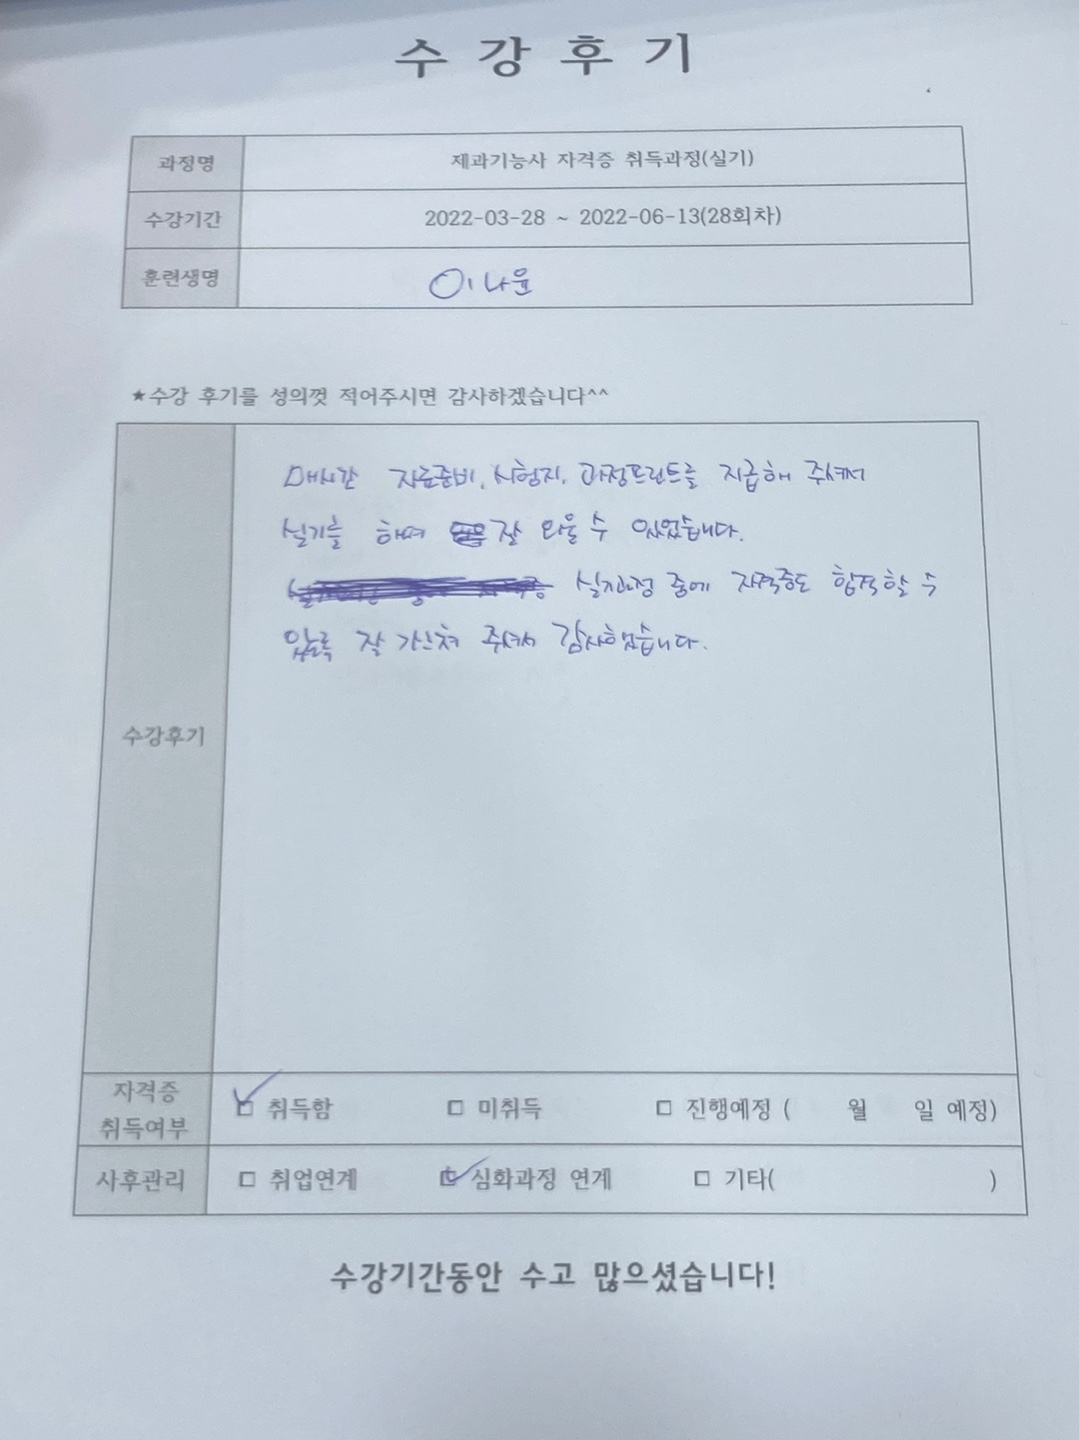 수 강 후 기
과정명 제과기능사 자격증 취득과정(실기)
수강기간 2022-03-28 ~ 2022-06-13(28회차)
훈련생명 이나윤
★수강 후기를 성의껏 적어주시면 감사하겠습니다^^
수강후기
매시간 자료준비, 시험지, 과정프린트를 지급해 주셔서
실기를 하며 잘 외울 수 있었습니다.
실기과정 중에 자격증도 합격할 수
있도록 잘 가르쳐 주셔서 감사했습니다.
자격증
취득여부
☑ 취득함 □ 미취득 □ 진행예정 ( 월 일 예정)
사후관리 □ 취업연계 ☑ 심화과정 연계 □ 기타( )
수강기간동안 수고 많으셨습니다!